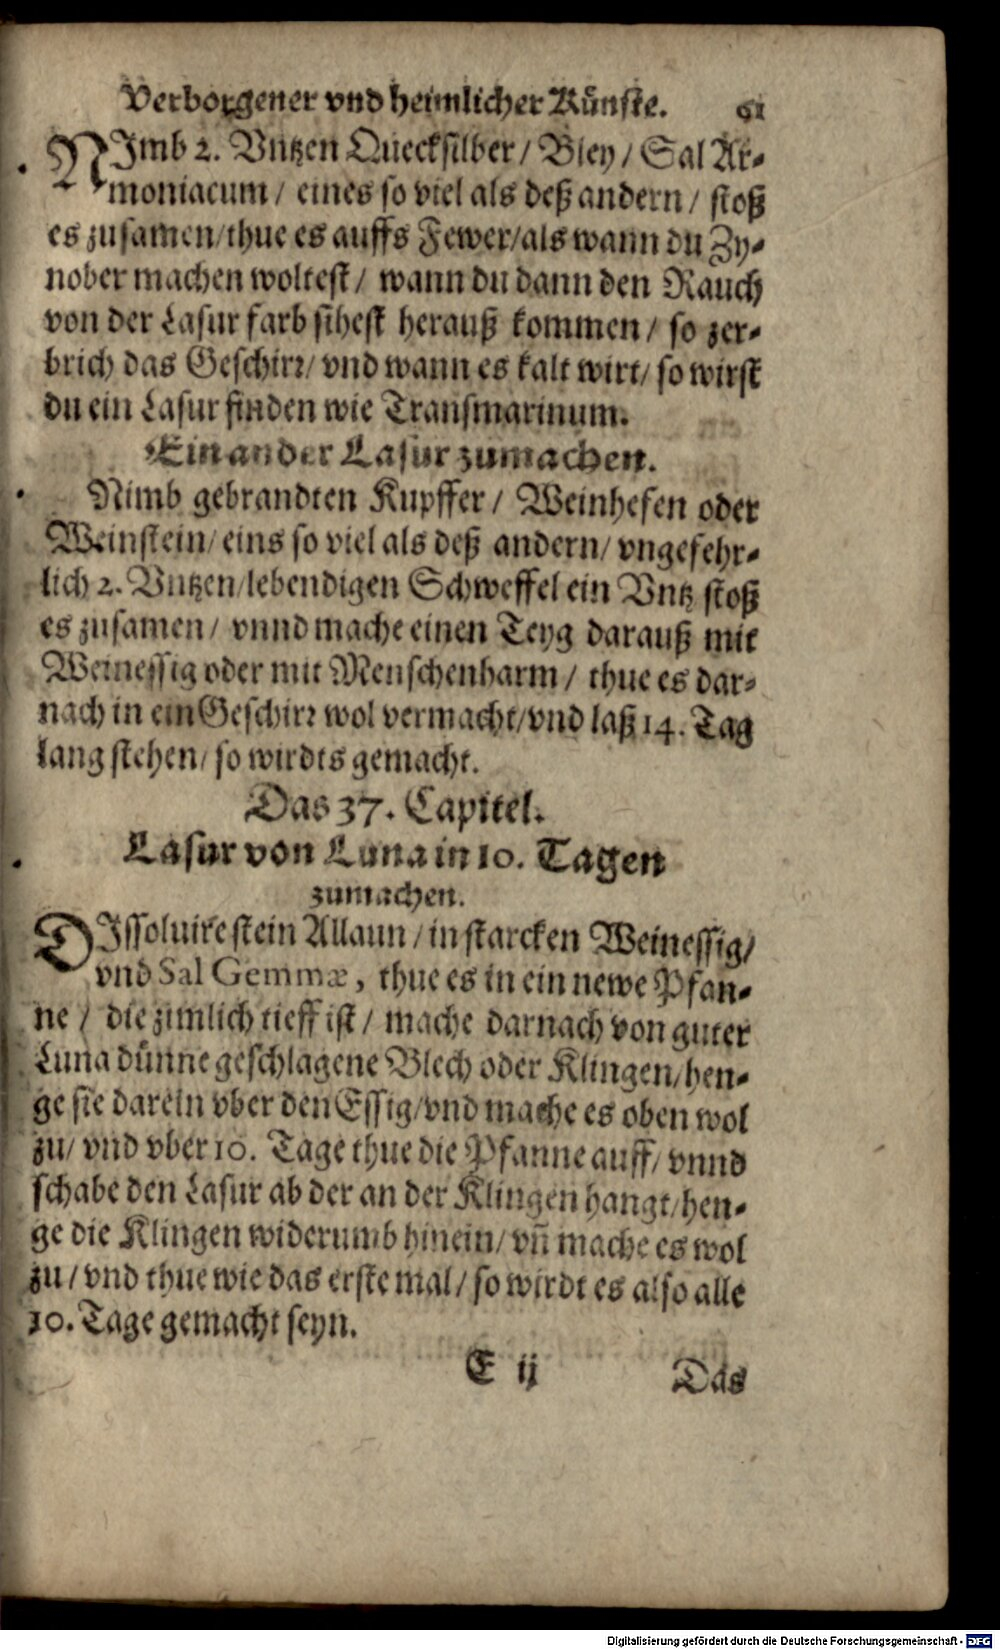 Verborgener vnd heimlicher Künste. 61
NJmb 2. Vntzen Quecksilber / Bley / Sal Ar-
moniacum / eines so viel als deß andern / stoß
es zusamen / thue es auffs Fewer / als wann du Zy-
nober machen woltest / wann du dann den Rauch
von der Lasur farb sihest herauß kommen / so zer-
brich das Geschirr / vnd wann es kalt wirt / so wirst
du ein Lasur finden wie Transmarinum.
Ein ander Lasur zumachen.
Nimb gebrandten Kupffer / Weinhefen oder
Weinstein / eins so viel als deß andern / vngefehr-
lich 2. Vntzen / lebendigen Schweffel ein Vntz stoß
es zusamen / vnnd mache einen Teyg darauß mit
Weinessig oder mit Menschenharm / thue es dar-
nach in ein Geschirr wol vermacht / vnd laß 14. Tag
lang stehen / so wirdts gemacht.
Das 37. Capitel.
Lasur von Luna in 10. Tagen
zumachen.
DJssoluire stein Allaun / in starcken Weinessig /
vnd Sal Gemmæ, thue es in ein newe Pfan-
ne / die zimlich tieff ist / mache darnach von guter
Luna dünne geschlagene Blech oder Klingen / hen-
ge sie darein vber den Essig / vnd mache es oben wol
zu / vnd vber 10. Tage thue die Pfanne auff / vnnd
schabe den Lasur ab der an der Klingen hangt / hen-
ge die Klingen widerumb hinein / vñ mache es wol
zu / vnd thue wie das erste mal / so wirdt es also alle
10. Tage gemacht seyn.
E ij Das
Digitalisierung gefördert durch die Deutsche Forschungsgemeinschaft - DFG